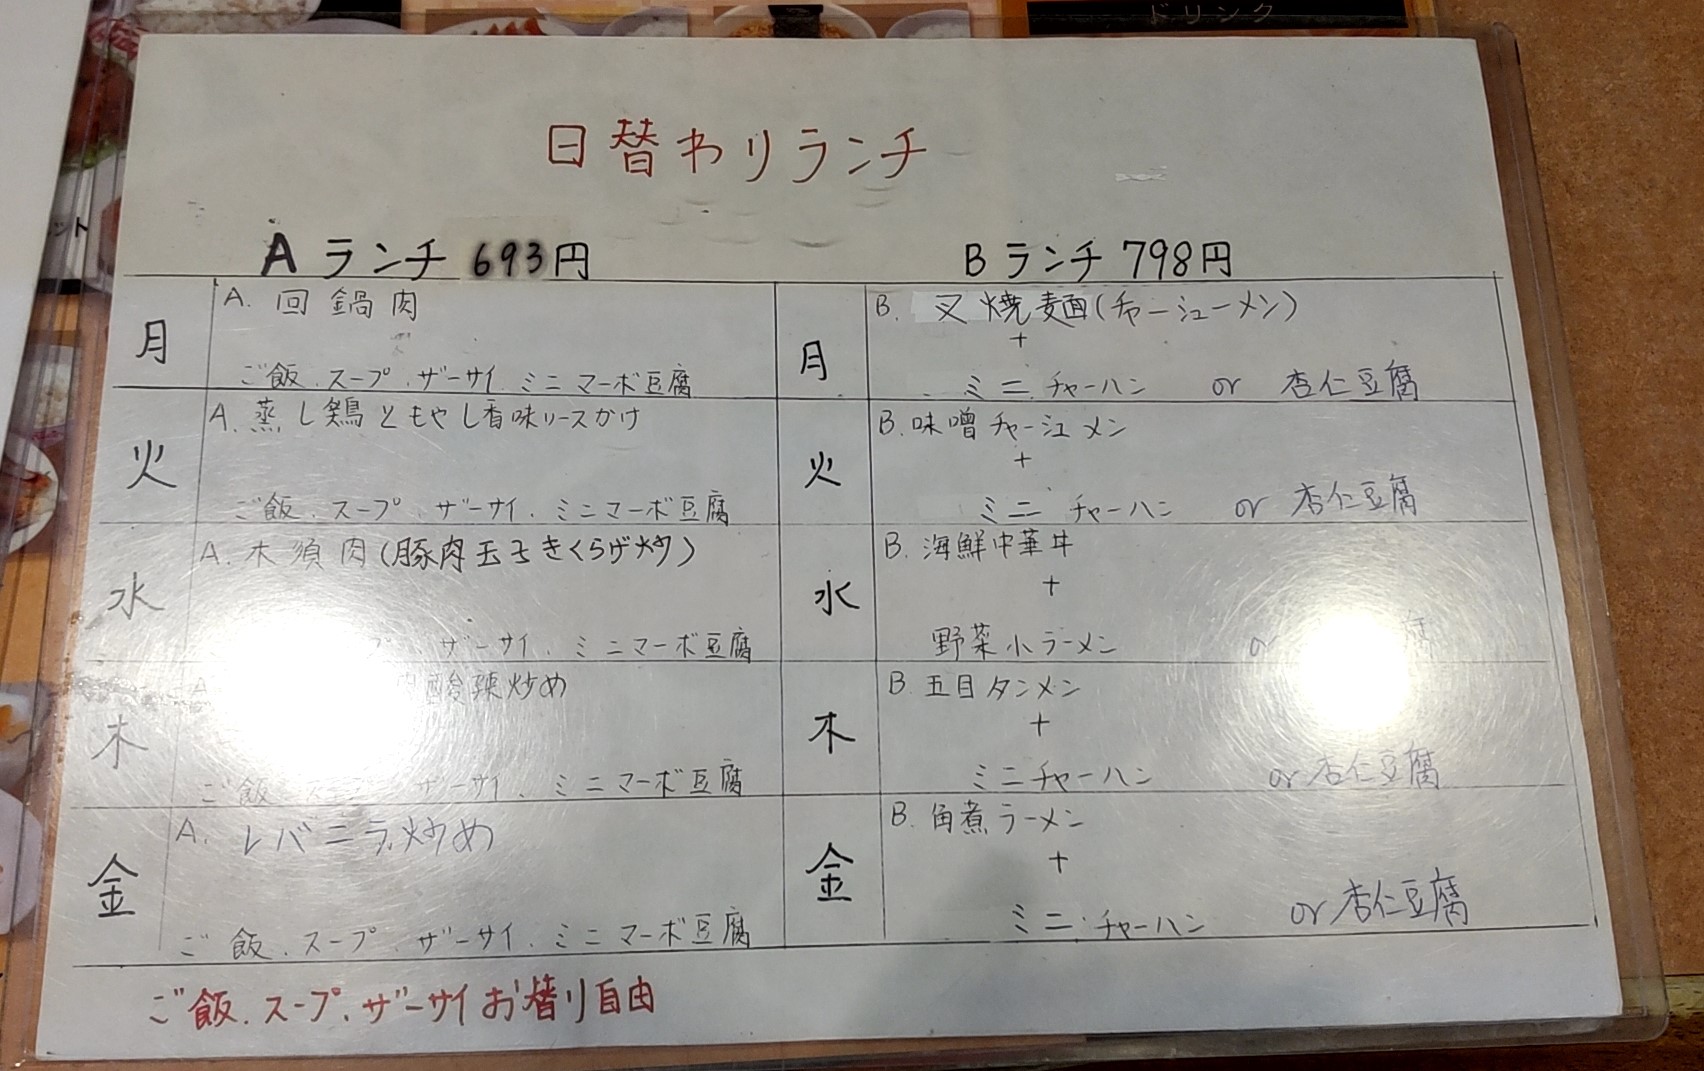 ドリンク
ント
日替わりランチ
Aランチ 693円
Bランチ 798円
月
A. 回鍋肉
ご飯.スープ.ザーサイ.ミニマーボ豆腐
月
B. 叉焼麺(チャーシューメン)
+
ミニチャーハン or 杏仁豆腐
火
A. 蒸し鶏ともやし香味ソースかけ
ご飯.スープ.ザーサイ.ミニマーボ豆腐
火
B. 味噌チャーシュメン
+
ミニチャーハン or 杏仁豆腐
水
A. 木須肉(豚肉玉子きくらげ炒)
プ.ザーサイ.ミニマーボ豆腐
水
B. 海鮮中華丼
+
野菜小ラーメン or 腐
木
酸辣炒め
ご飯.スープ.ザーサイ.ミニマーボ豆腐
木
B. 五目タンメン
+
ミニチャーハン or 杏仁豆腐
金
A. レバニラ炒め
ご飯.スープ.ザーサイ.ミニマーボ豆腐
金
B. 角煮ラーメン
+
ミニチャーハン or 杏仁豆腐
ご飯.スープ.ザーサイお替り自由